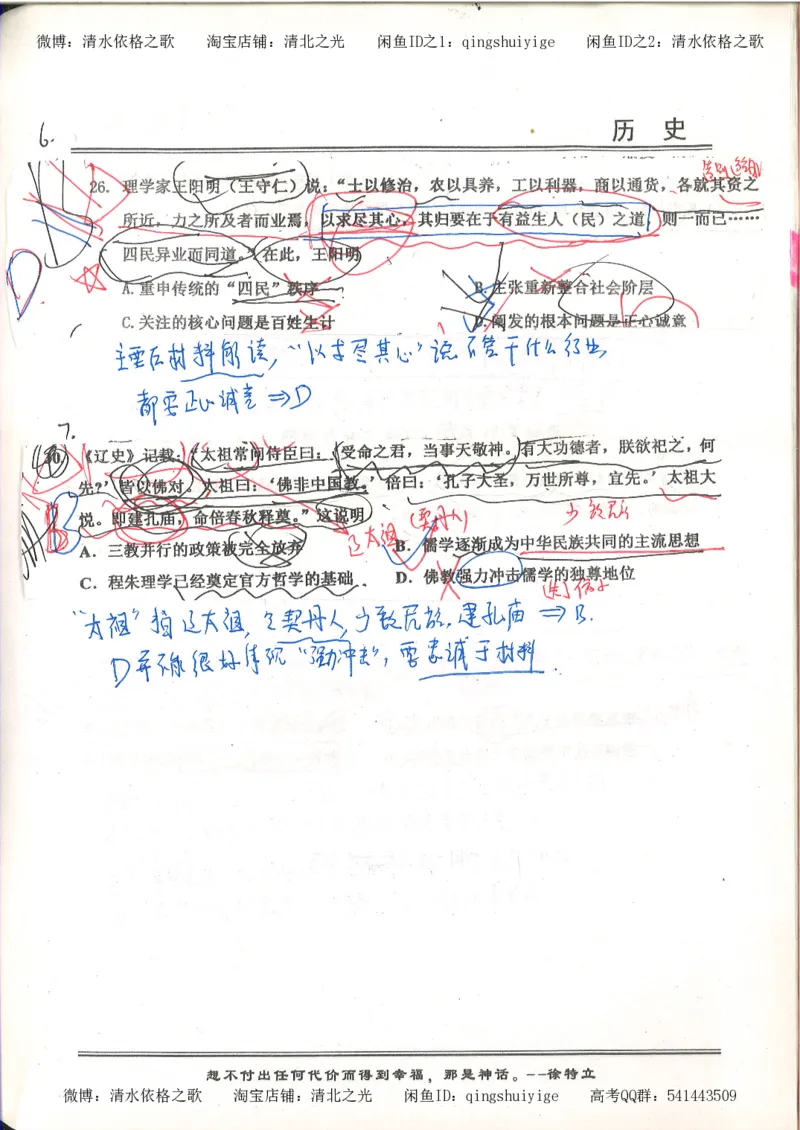 微博：清水依格之歌 淘宝店铺：清北之光 闲鱼ID之1：qingshuiyige 闲鱼ID之2：清水依格之歌
历 史
6.
26. 理学家王阳明（王守仁）说：“士以修治，农以具养，工以利器，商以通货，各就其资之
所近，力之所及者而业焉，以求尽其心，其归要在于有益生人（民）之道，则一而已……
四民异业而同道。”在此，王阳明
D
A. 重申传统的“四民”秩序 B. 主张重新整合社会阶层
C. 关注的核心问题是百姓生计 D. 阐发的根本问题是正心诚意
主要在材料解读，“以求尽其心”说不管干什么行业
都要正心诚意⇒D
7.
30. 《辽史》记载：“太祖常问侍臣曰：‘受命之君，当事天敬神。有大功德者，朕欲祀之，何
先？’皆以佛对。太祖曰：‘佛非中国教。’倍曰：‘孔子大圣，万世所尊，宜先。’太祖大
悦。即建孔庙，命倍春秋释奠。”这说明
B
辽太祖（契丹人） 少数民族
A. 三教并行的政策被完全放弃 B. 儒学逐渐成为中华民族共同的主流思想
C. 程朱理学已经奠定官方哲学的基础 D. 佛教强力冲击儒学的独尊地位
“太祖”指辽太祖，是契丹人，少数民族，建孔庙⇒B.
D并称很好体现“强力冲击”，要忠诚于材料
想不付出任何代价而得到幸福，那是神话。--徐特立
微博：清水依格之歌 淘宝店铺：清北之光 闲鱼ID：qingshuiyige 高考QQ群：541443509